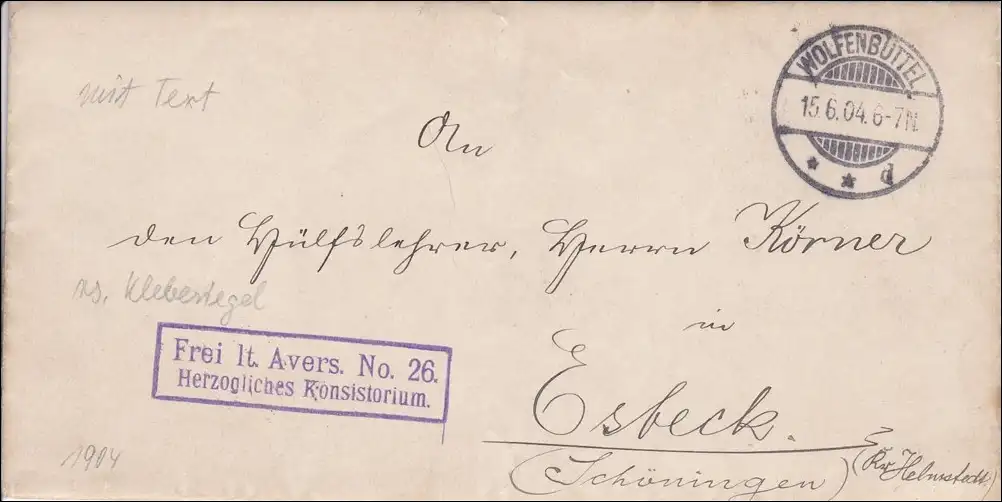 mit Text
WOLFENBÜTTEL
15.6.04.6-7N.
* * d
An
den Hülfslehrer, Herrn Körner
rs. Klebesiegel
in
Frei lt. Avers. No. 26.
Herzogliches Konsistorium.
Esbeck.
(Schöningen)
(Kr. Helmstedt.)
1904